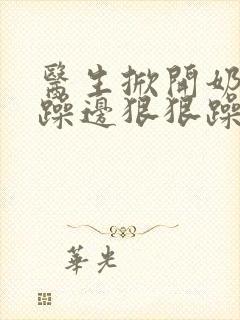 醫生掀開奶
躁邊狠狠躁
華光